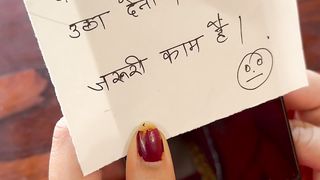 देना
जरुरी काम है।